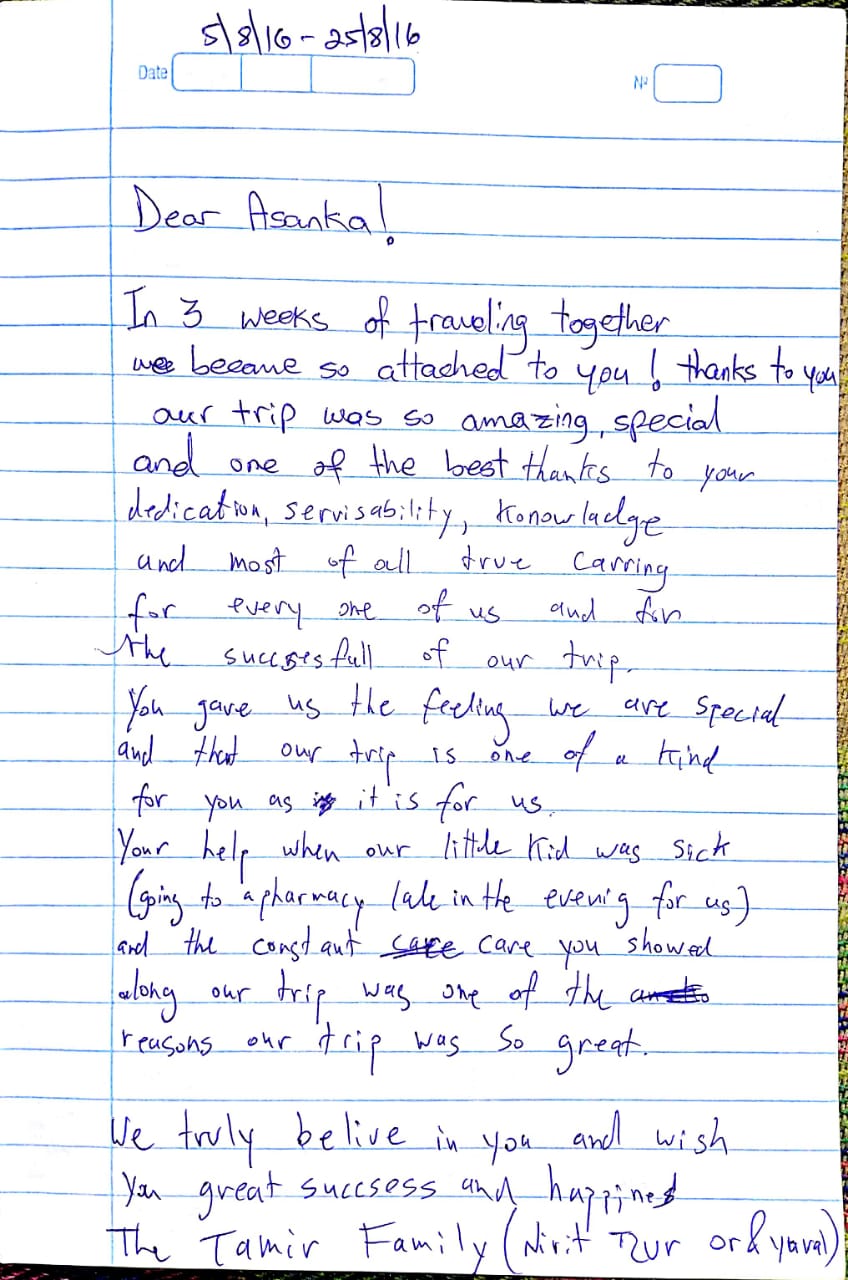 5/8/16 - 25/8/16
Date
Nº
Dear Asanka!
In 3 weeks of traveling together
we became so attached to you! thanks to you
our trip was so amazing, special
and one of the best thanks to your
dedication, servisability, Konowladge
and most of all true carring
for every one of us and for
the succsesfull of our trip.
You gave us the feeling we are special
and that our trip is one of a kind
for you as it is for us.
Your help when our little kid was sick
(going to a pharmacy late in the evenig for us)
and the constant care you showed
along our trip was one of the
reasons our trip was so great.
We truly belive in you and wish
you great succsess and happines
The Tamir Family (Nirit Tzur or & yuval)